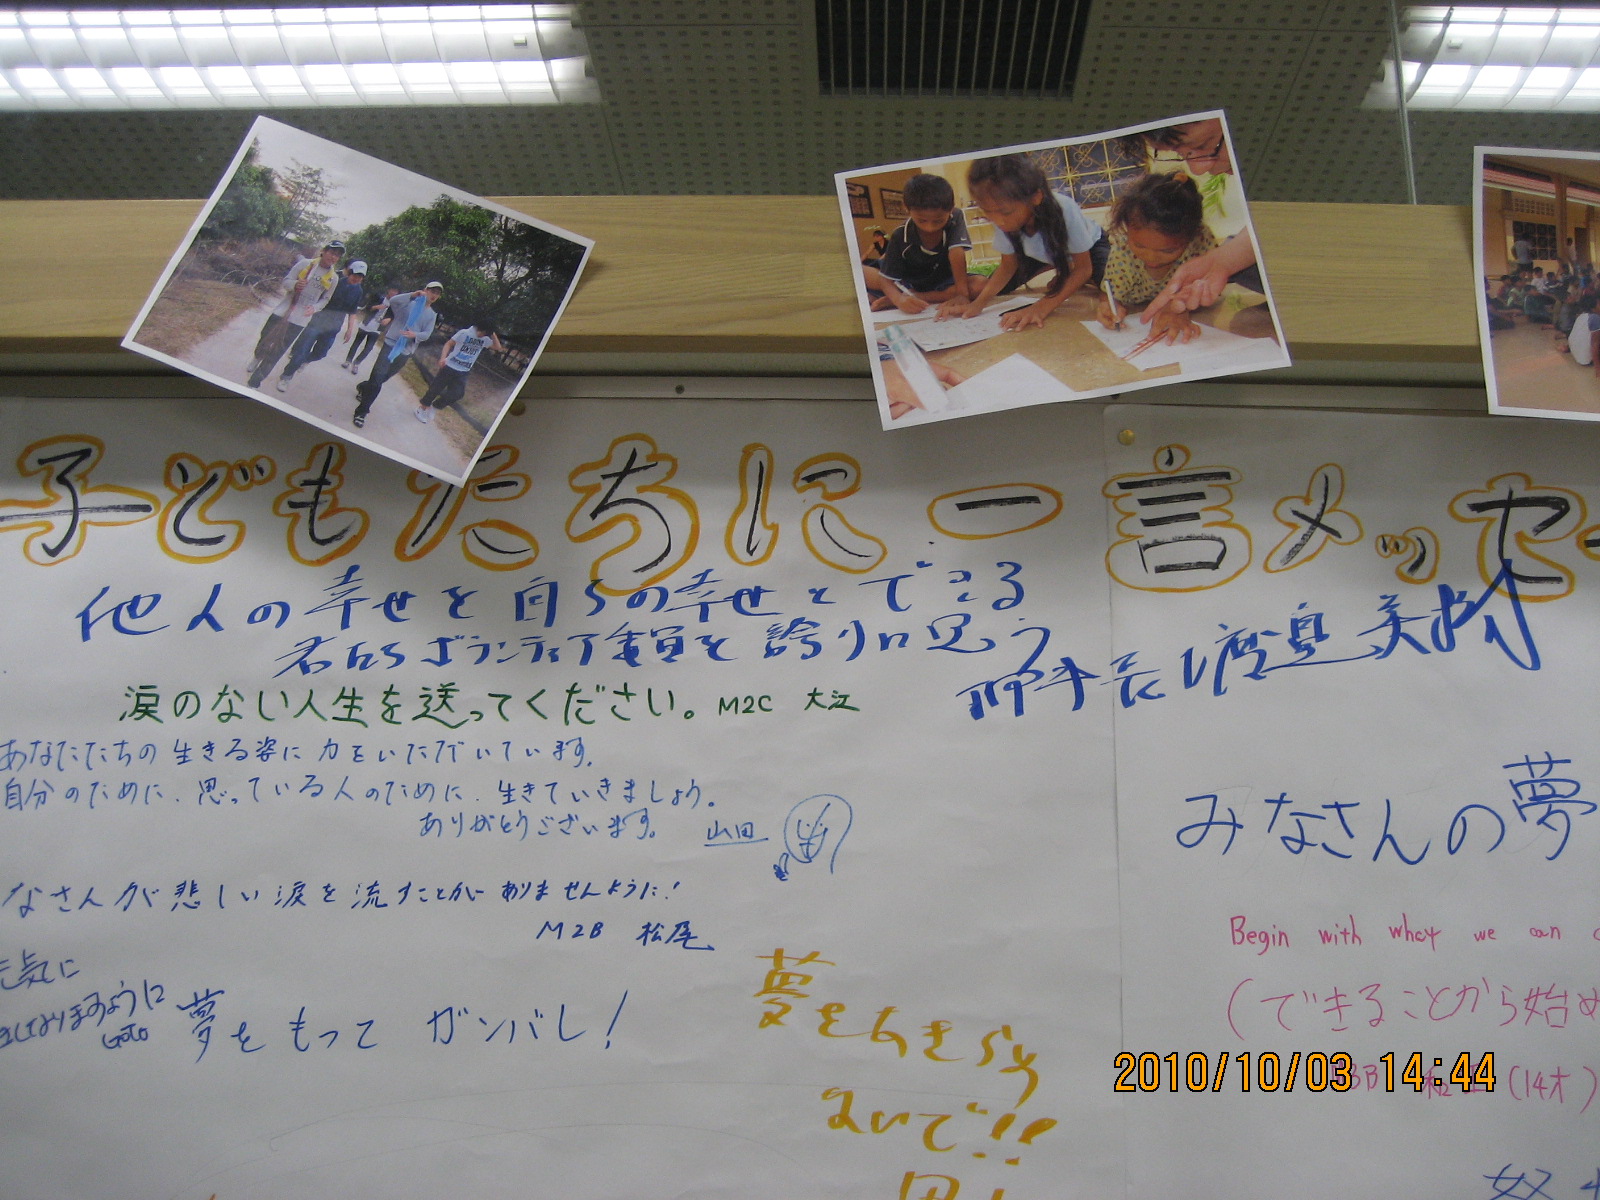 子どもたちに一言メッセー
他人の幸せを自らの幸せとできる
ボランティア委員を誇りに思う
涙のない人生を送ってください。M2C 大江
あなたたちの生きる姿に力をいただいています。
自分のために、思っている人のために、生きていきましょう。
ありがとうございます。 山田
なさんが悲しい涙を流すことがありませんように!
M2B 松尾
元気に
ますように
Goto
夢をもって ガンバレ!
夢をあきらめ
ないで!!
みなさんの夢
Begin with what we can
(できることから始め
(14才)
2010/10/03 14:44